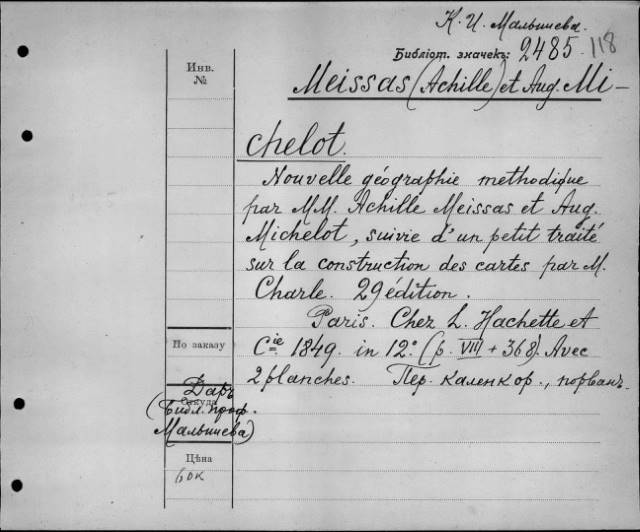 К. И. Малышева.
Библіот. значекъ: 2485 118
Инв.
№
Meissas (Achille) et Aug. Mi-
chelot.
Nouvelle géographie methodique
par MM. Achille Meissas et Aug.
Michelot, suivie d'un petit traité
sur la construction des cartes par M.
Charle. 29 édition.
Paris. Chez L. Hachette et
Cie 1849. in 12º (p. VIII + 368). Avec
2 planches. Пер. каленкор., порванъ.
По заказу
Даръ
Откуда
(Библ. проф.
Малышева)
Цѣна
60к